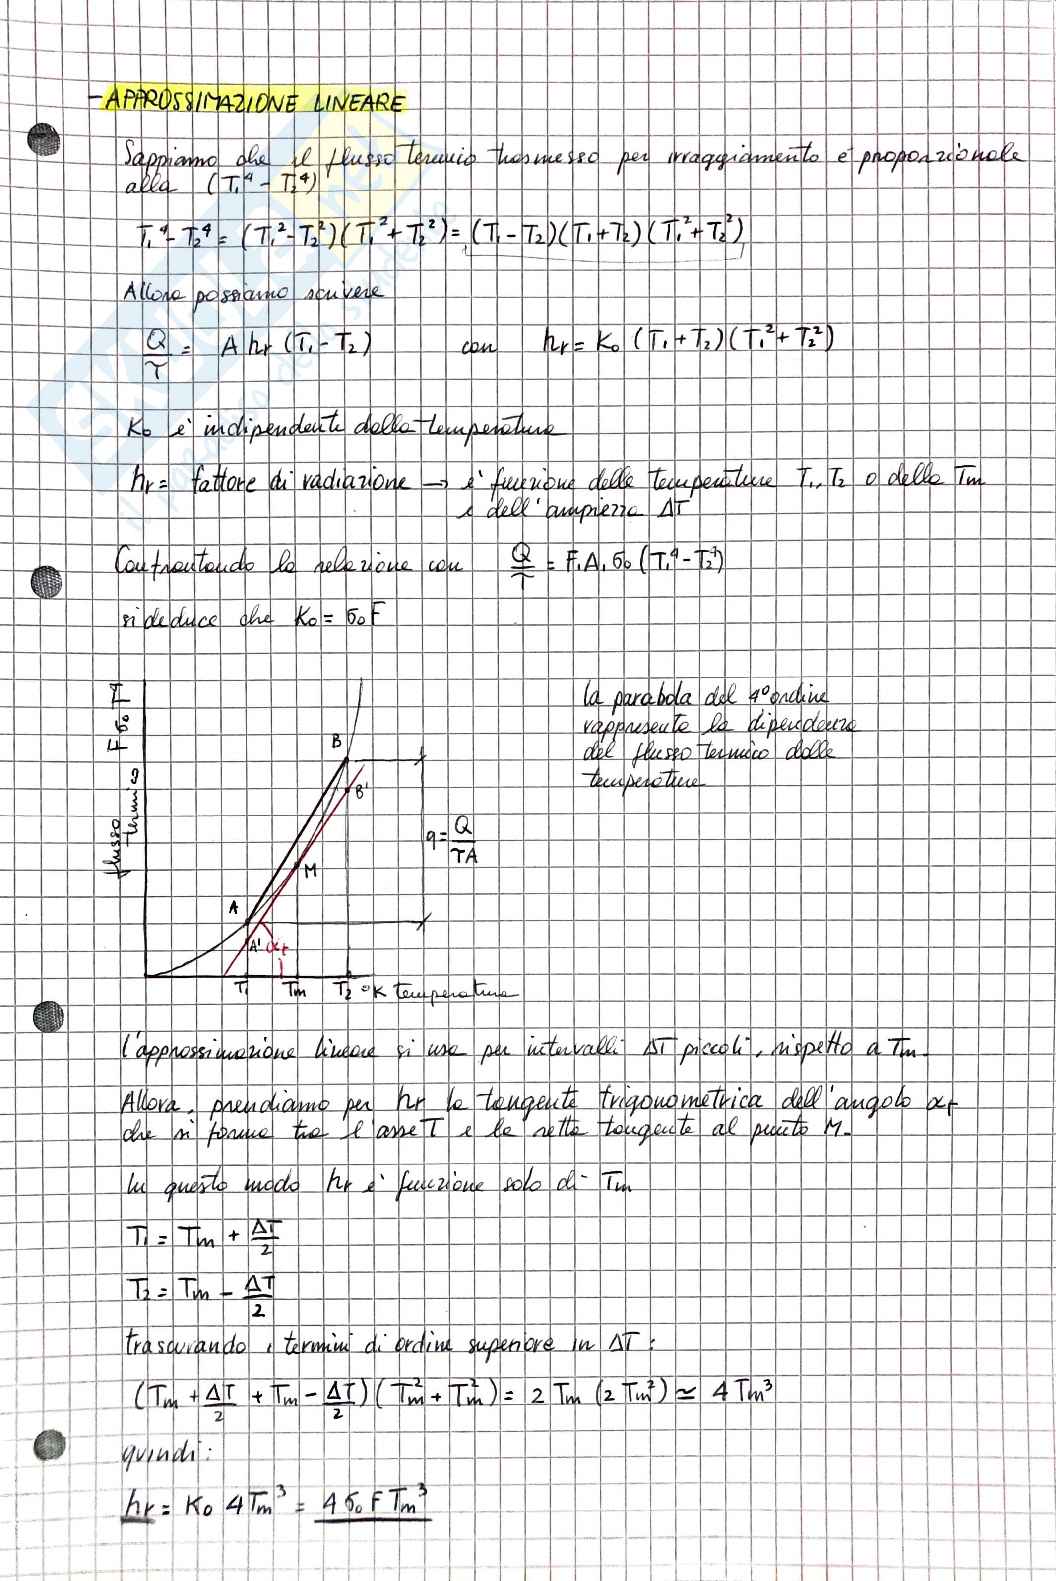 - APPROSSIMAZIONE LINEARE
Sappiamo che il flusso termico trasmesso per irraggiamento è proporzionale
alla (T₁⁴ - T₂⁴)
T₁⁴ - T₂⁴ = (T₁² - T₂²)(T₁² + T₂²) = (T₁ - T₂)(T₁ + T₂)(T₁² + T₂²)
Allora possiamo scrivere
Q/τ = A hr (T₁ - T₂) con hr = K₀ (T₁ + T₂)(T₁² + T₂²)
K₀ è indipendente dalla temperatura
hr = fattore di radiazione → è funzione delle temperature T₁, T₂ o della Tm
e dell'ampiezza ΔT
Confrontando la relazione con Q/τ = F₁A₁σ₀(T₁⁴ - T₂⁴)
si deduce che K₀ = σ₀F
flusso termico Fσ₀T⁴
la parabola del 4° ordine
rappresenta la dipendenza
del flusso termico dalla
temperatura
B
B'
q = Q/τA
M
A
A'
αt
T₁ Tm T₂ °K temperatura
l'approssimazione lineare si usa per intervalli ΔT piccoli, rispetto a Tm.
Allora, prendiamo per hr la tangente trigonometrica dell'angolo αt
che si forma tra l'asse T e la retta tangente al punto M.
In questo modo hr è funzione solo di Tm
T₁ = Tm + ΔT/2
T₂ = Tm - ΔT/2
trascurando i termini di ordine superiore in ΔT:
(Tm + ΔT/2 + Tm - ΔT/2)(Tm² + Tm²) = 2Tm (2Tm²) ≃ 4Tm³
quindi:
hr = K₀ 4Tm³ = 4σ₀FTm³